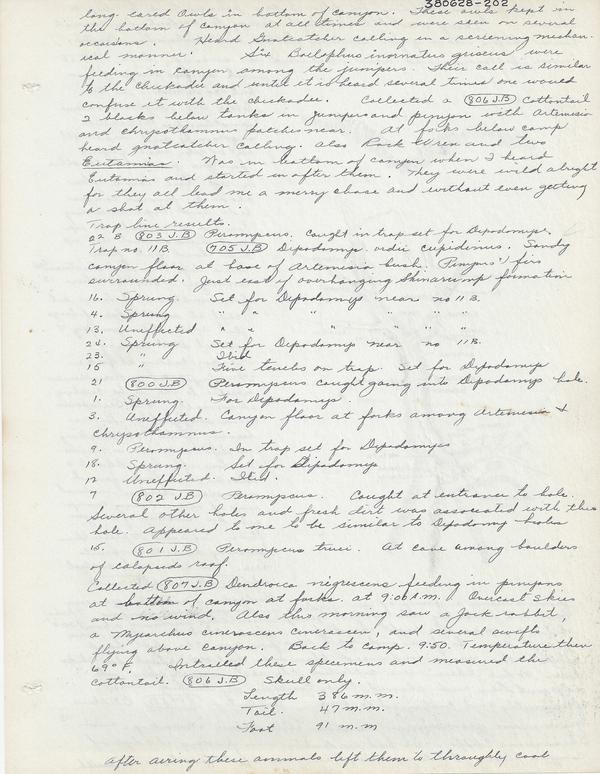 380628-202
long eared Owls in bottom of canyon. These owls kept in
the bottom of canyon at all times and were seen on several
occasions. Heard Gnatcatcher calling in a screening mechan-
ical manner. Six Baelophus inornatus griseus were
feeding in canyon among the junipers. Their call is similar
to the chickadee and until it is heard several times one would
confuse it with the chickadee. Collected a (806 J.B) Cottontail
2 blocks below tanks in juniper and pinyon with Artemesia
and chrysothamnus patches near. At forks below camp
heard gnatcatcher calling. Also Rock Wren and two
Eutamias. Was in bottom of canyon when I heard
Eutamias and started in after them. They were wild alright
for they all lead me a merry chase and without even getting
a shot at them.
Trap line results.
22 B (803 J.B) Peromyscus. Caught in trap set for Dipodomys.
Trap no. 11 B. (705 J.B) Dipodomys ordii cupidineus. Sandy
canyon floor at base of Artemesia bush. Pinyons & firs
surrounded. Just east of overhanging Shinarump formation
16. Sprung. Set for Dipodomys near no 11 B.
4. Sprung " " " " " "
13. Uneffected " " " " " "
24. Sprung Set for Dipodomys near no 11 B.
23. " Ibid
15 " Five tenebs on trap. Set for Dipodomys
21 (800 J.B) Peromyscus caught going into Dipodomys hole.
1. Sprung. For Dipodomys.
3. Uneffected. Canyon floor at forks among Artemesia &
Chrysothamnus.
9. Peromyscus. In trap set for Dipodomys
18. Sprung. Set for Dipodomys
12 Uneffected. Ibid.
7 (802 J.B) Peromyscus. Caught at entrance to hole.
Several other holes and fresh dirt was associated with this
hole. Appeared to me to be similar to Dipodomy holes
15. (801 J.B) Peromyscus truei. At cave among boulders
of colapsed roof.
Collected (807 J.B) Dendroica nigrescens feeding in pinyons
at bottom of canyon at forks. at 9:00 A.M. Overcast skies
and no wind. Also this morning saw a Jack rabbit,
a Myiarchus cinerascens cinerascens, and several swifts
flying above canyon. Back to camp. 9:50. Temperature then
69° F. Intrailed these specimens and measured the
cottontail. (806 J.B) Skull only.
Length 386 m.m.
Tail. 47 m.m.
Foot 91 m.m
After airing these animals left them to throughly cool